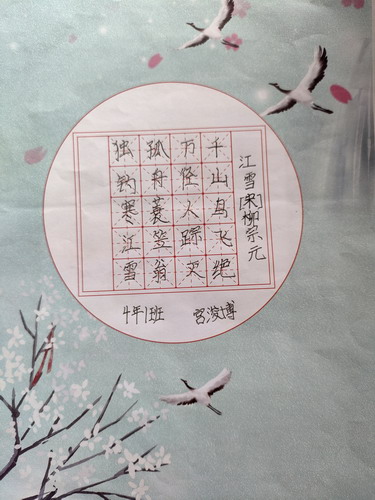 江雪[宋]柳宗元
千山鸟飞绝
万径人踪灭
孤舟蓑笠翁
独钓寒江雪
4年1班 宫浚博